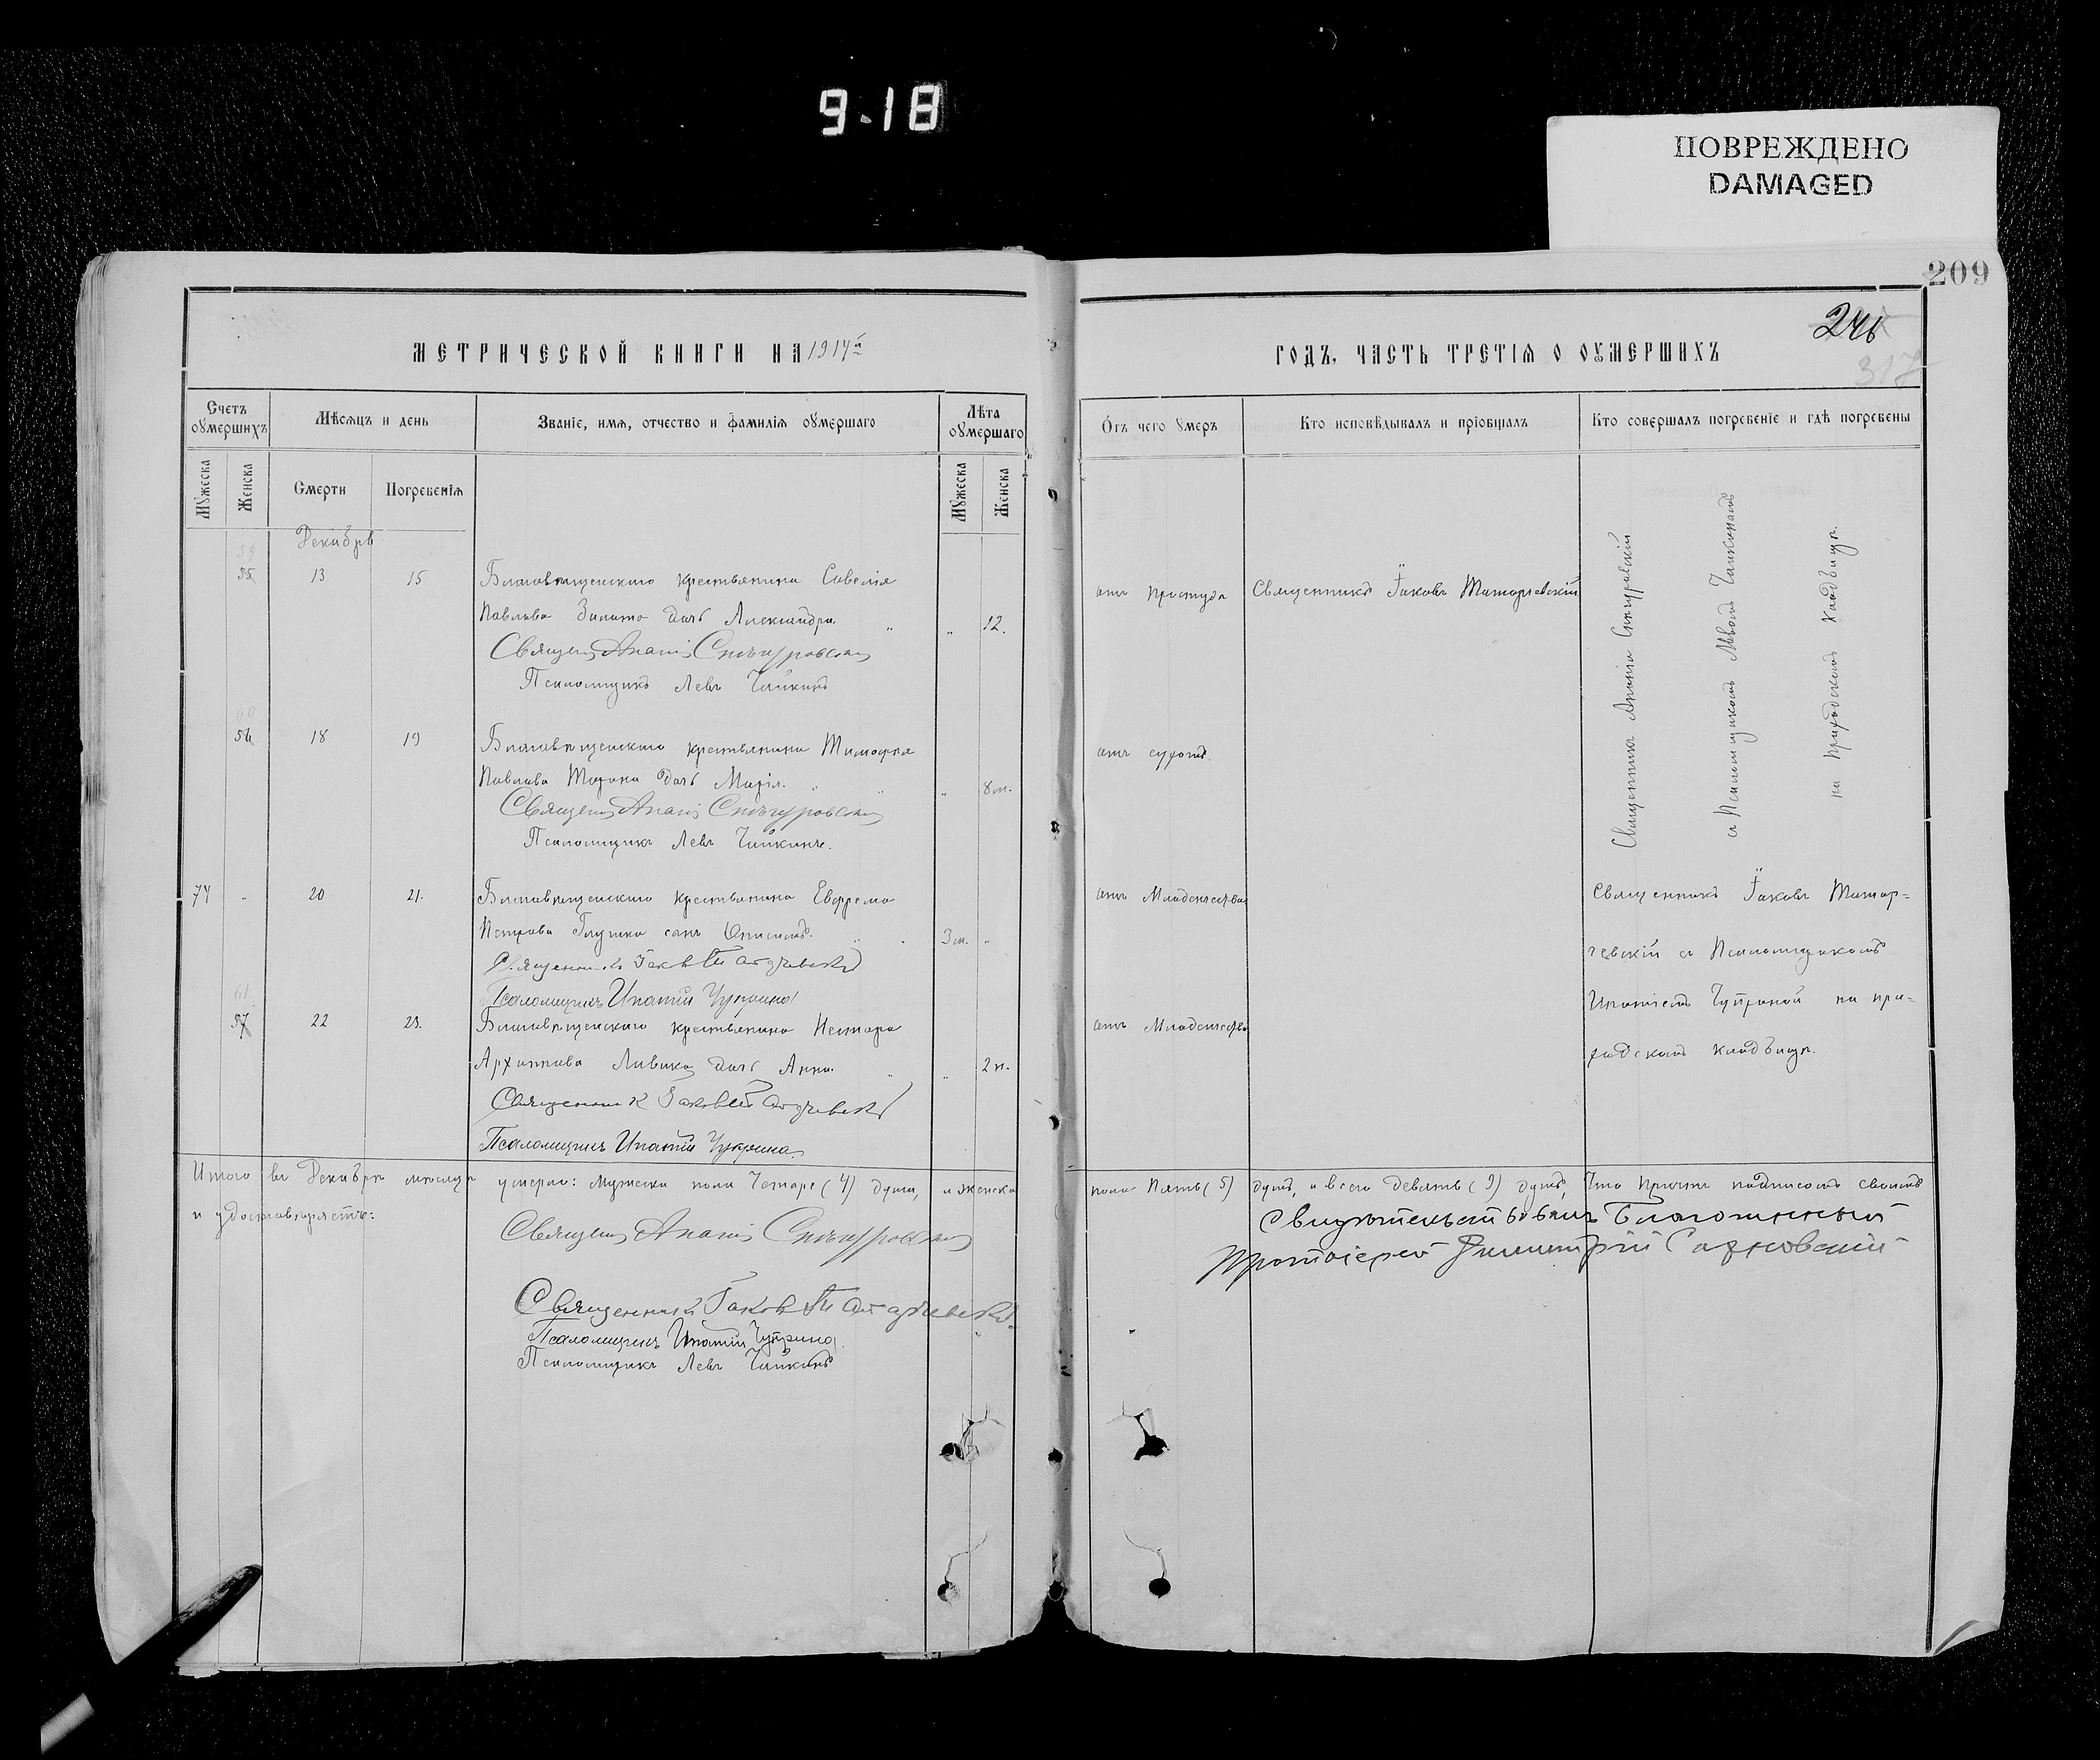 9.18
ПОВРЕЖДЕНО
DAMAGED
209
246
317
МЕТРИЧЕСКОЙ КНИГИ НА 1914й
ГОДЪ, ЧАСТЬ ТРЕТІЯ О ОУМЕРШИХЪ
Счетъ оумершихъ
Мѣсяцъ и день
Званіе, имя, отчество и фамилія оумершаго
Лѣта оумершаго
Отъ чего умеръ
Кто исповѣдывалъ и пріобщалъ
Кто совершалъ погребеніе и гдѣ погребены
Мужеска
Женска
Смерти
Погребенія
Мужеска
Женска
Декабрь
59
55 13 15 Благовѣщенскаго крестьянина Савелія
Павлова дочь Александра. " " 12.
отъ простуды
Священникъ Іаковъ Татарчевскій
Псаломщикъ Левъ Чайкинъ
60
56 18 19 Благовѣщенскаго крестьянина Тимоѳея
Павлова дочь Марія. " " " 8 м.
Псаломщикъ Левъ Чайкинъ.
Священникъ Ананія
съ Псаломщикомъ Львомъ Чайкинымъ
на приходскомъ кладбищѣ.
74 " 20 21. Благовѣщенскаго крестьянина Евфрема
Петрова Глушко сынъ " . 3 м. "
отъ младенчества
Священникъ Іаковъ Татарчевскій
Псаломщикъ Ипатій Чуприна
61
57 22 23. Благовѣщенскаго крестьянина Нестора
Архиппова дочь Анна. " " 2 н.
отъ младенчества
Священникъ Іаковъ Татарчевскій
Псаломщикъ Ипатій Чуприна.
Священникъ Іаковъ Татар=
чевскій съ Псаломщикомъ
Ипатіемъ Чуприной на при=
ходскомъ кладбищѣ.
Итого въ Декабрѣ мѣсяцѣ умерло: мужеска пола Четыре (4) души, и женска пола Пять (5) душъ, а всего девять (9) душъ, Что причтъ подписомъ своимъ
и удостовѣряетъ:
Священникъ Іаковъ Татарчевскій.
Псаломщикъ Ипатій Чуприна.
Псаломщикъ Левъ Чайкинъ
Свидѣтельствовалъ Благочинный
Протоіерей Димитрій